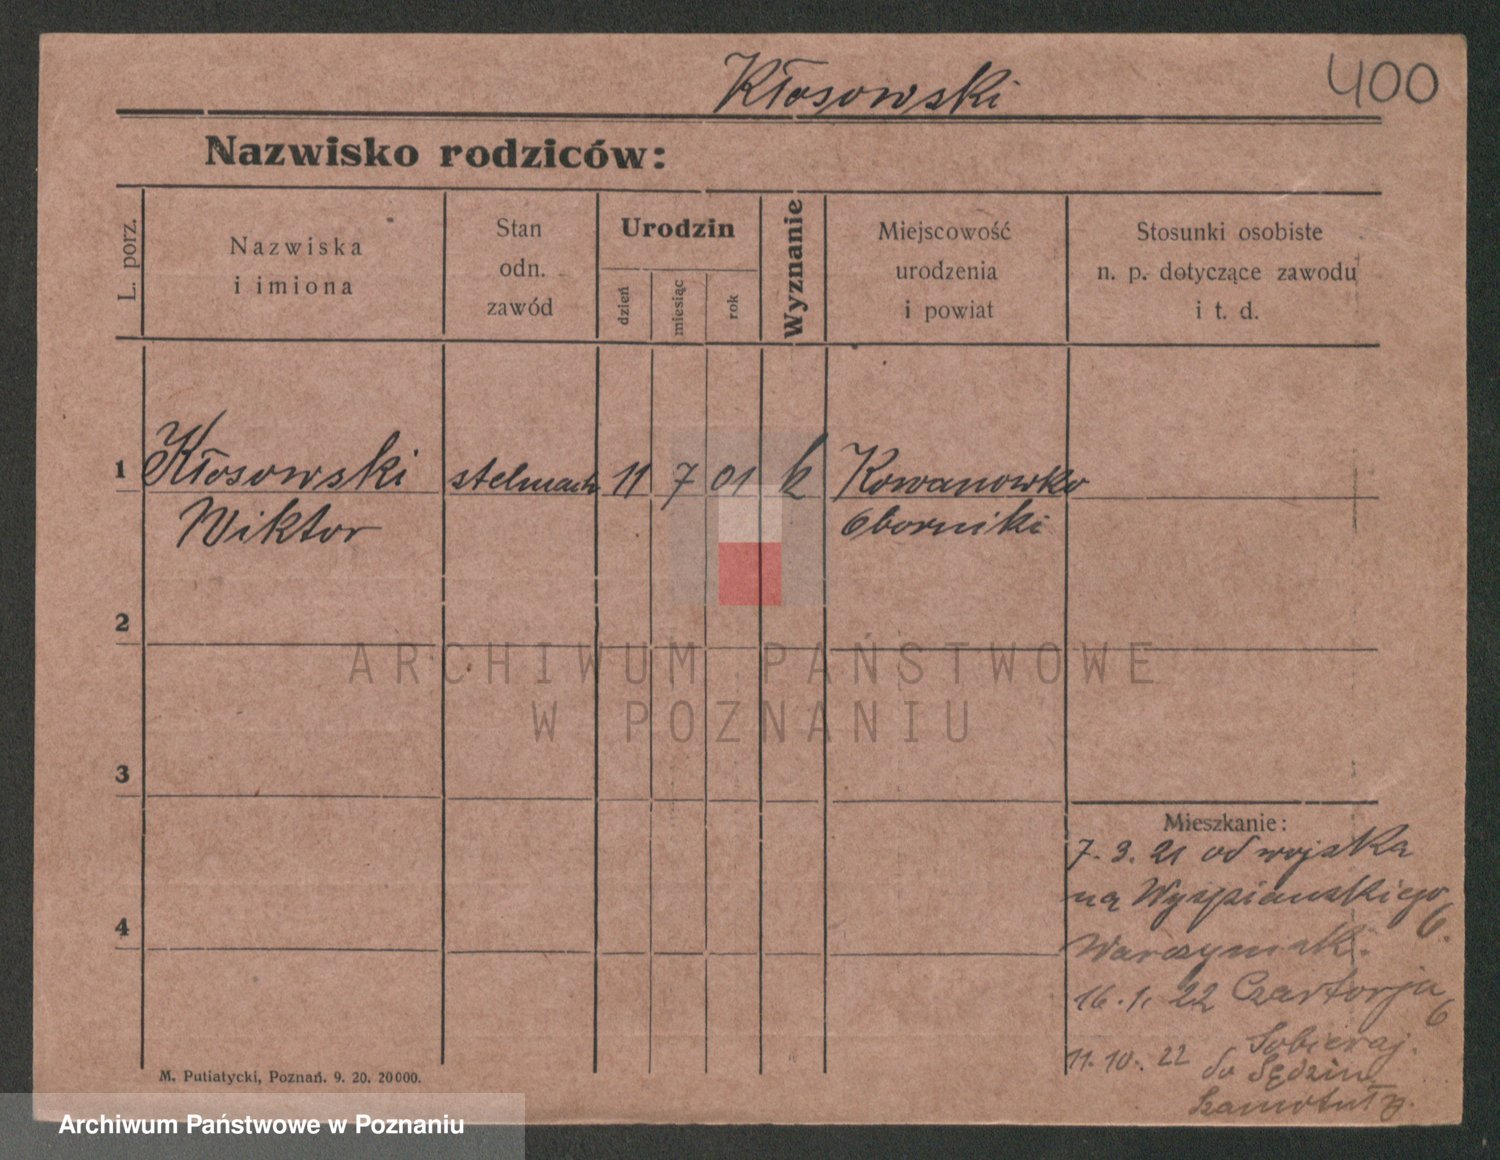 Kłosowski
400
Nazwisko rodziców:
L. porz.
Nazwiska
i imiona
Stan
odn.
zawód
Urodzin
dzień
miesiąc
rok
Wyznanie
Miejscowość
urodzenia
i powiat
Stosunki osobiste
n. p. dotyczące zawodu
i t. d.
1
Kłosowski
Wiktor
stelmach
11
7
01
k
Kowanowko
Oborniki
2
ARCHIWUM PAŃSTWOWE
W POZNANIU
3
4
Mieszkanie:
7. 3. 21 od wojska
na Wyspianskiego
6.
Warczyniak.
16. 1. 22 Czartorja
6
Sobieraj.
11. 10. 22
do Sędzin
M. Putiatycki, Poznań. 9. 20. 20000.
Archiwum Państwowe w Poznaniu